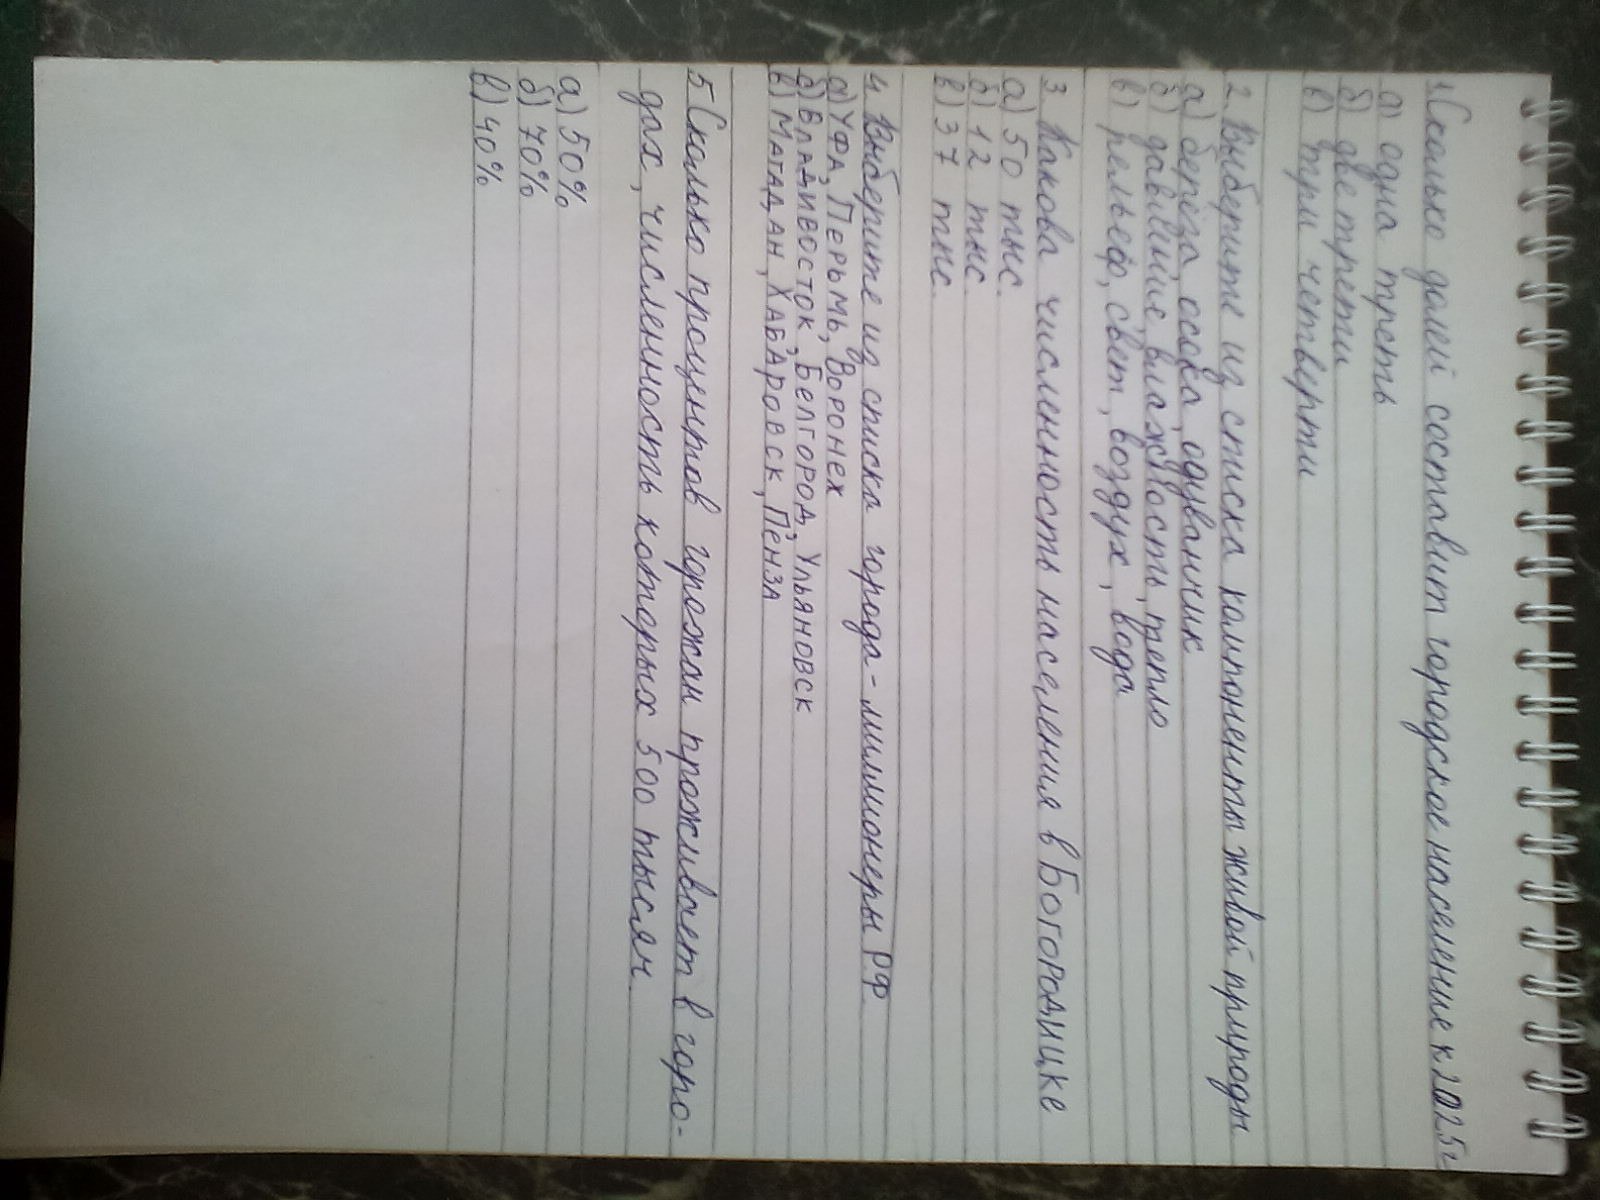 1. Сколько долей составит городское население к 2025г
а) одна треть
б) две трети
в) три четверти
2. Выберите из списка компоненты живой природы
а) берёза, осока, одуванчик
б) давление, влажность, тепло
в) рельеф, свет, воздух, вода
3. Какова численность населения в Богородицке
а) 50 тыс.
б) 12 тыс
в) 37 тыс.
4. Выберите из списка города-миллионеры РФ
а) Уфа, Перьмь, Воронех
б) Владивосток, Белгород, Ульяновск
в) Магадан, Хабаровск, Пенза
5. Сколько процентов горожан проживает в горо-
дах, численность которых 500 тысяч
а) 50%
б) 70%
в) 40%